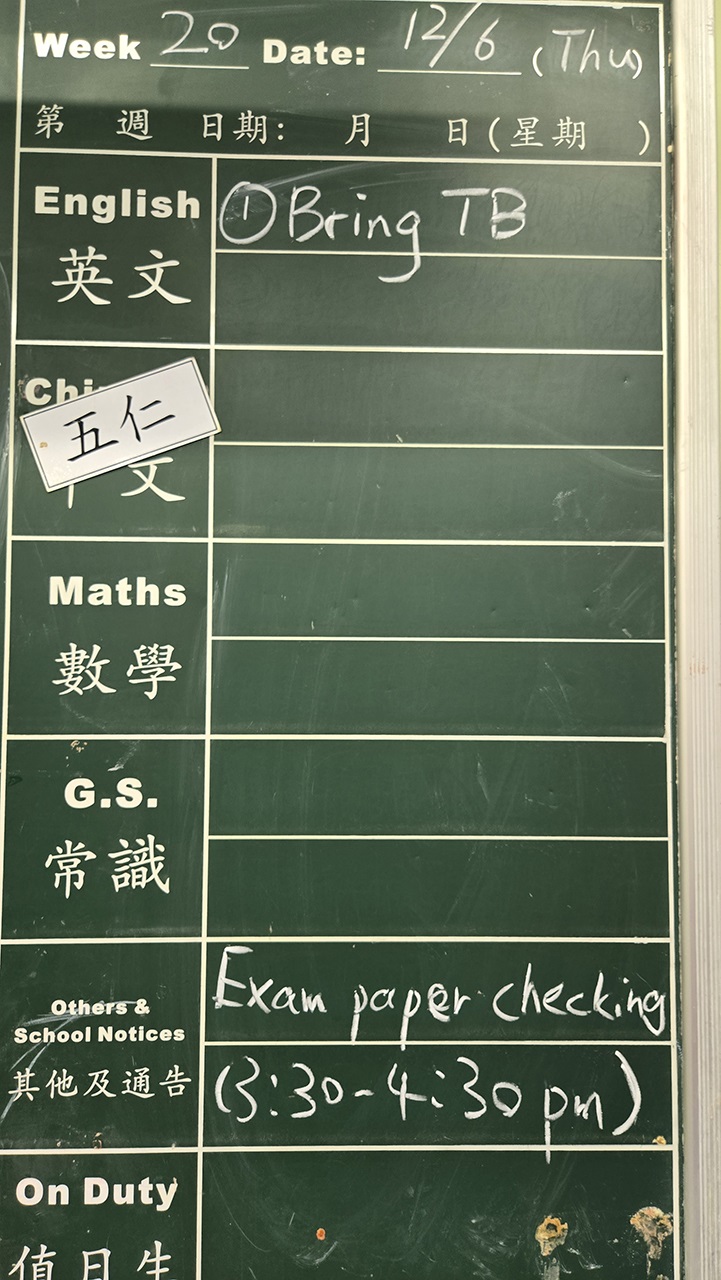 Week 20 Date: 12/6 (Thu)
第 週 日期: 月 日(星期 )
English ①Bring TB
英文
Chi
五仁
文
Maths
數學
G.S.
常識
Others & School Notices
其他及通告
Exam paper checking
(3:30-4:30 pm)
On Duty
值日生